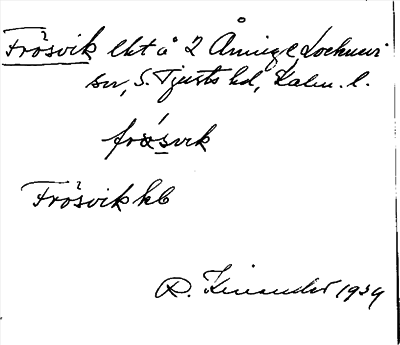 Frösvik lht å 2 Åminge Locknevi
sn, S. Tjusts hd, Kalm. l.
frø̀svik
Frösvik kb
R. Kinander 1939